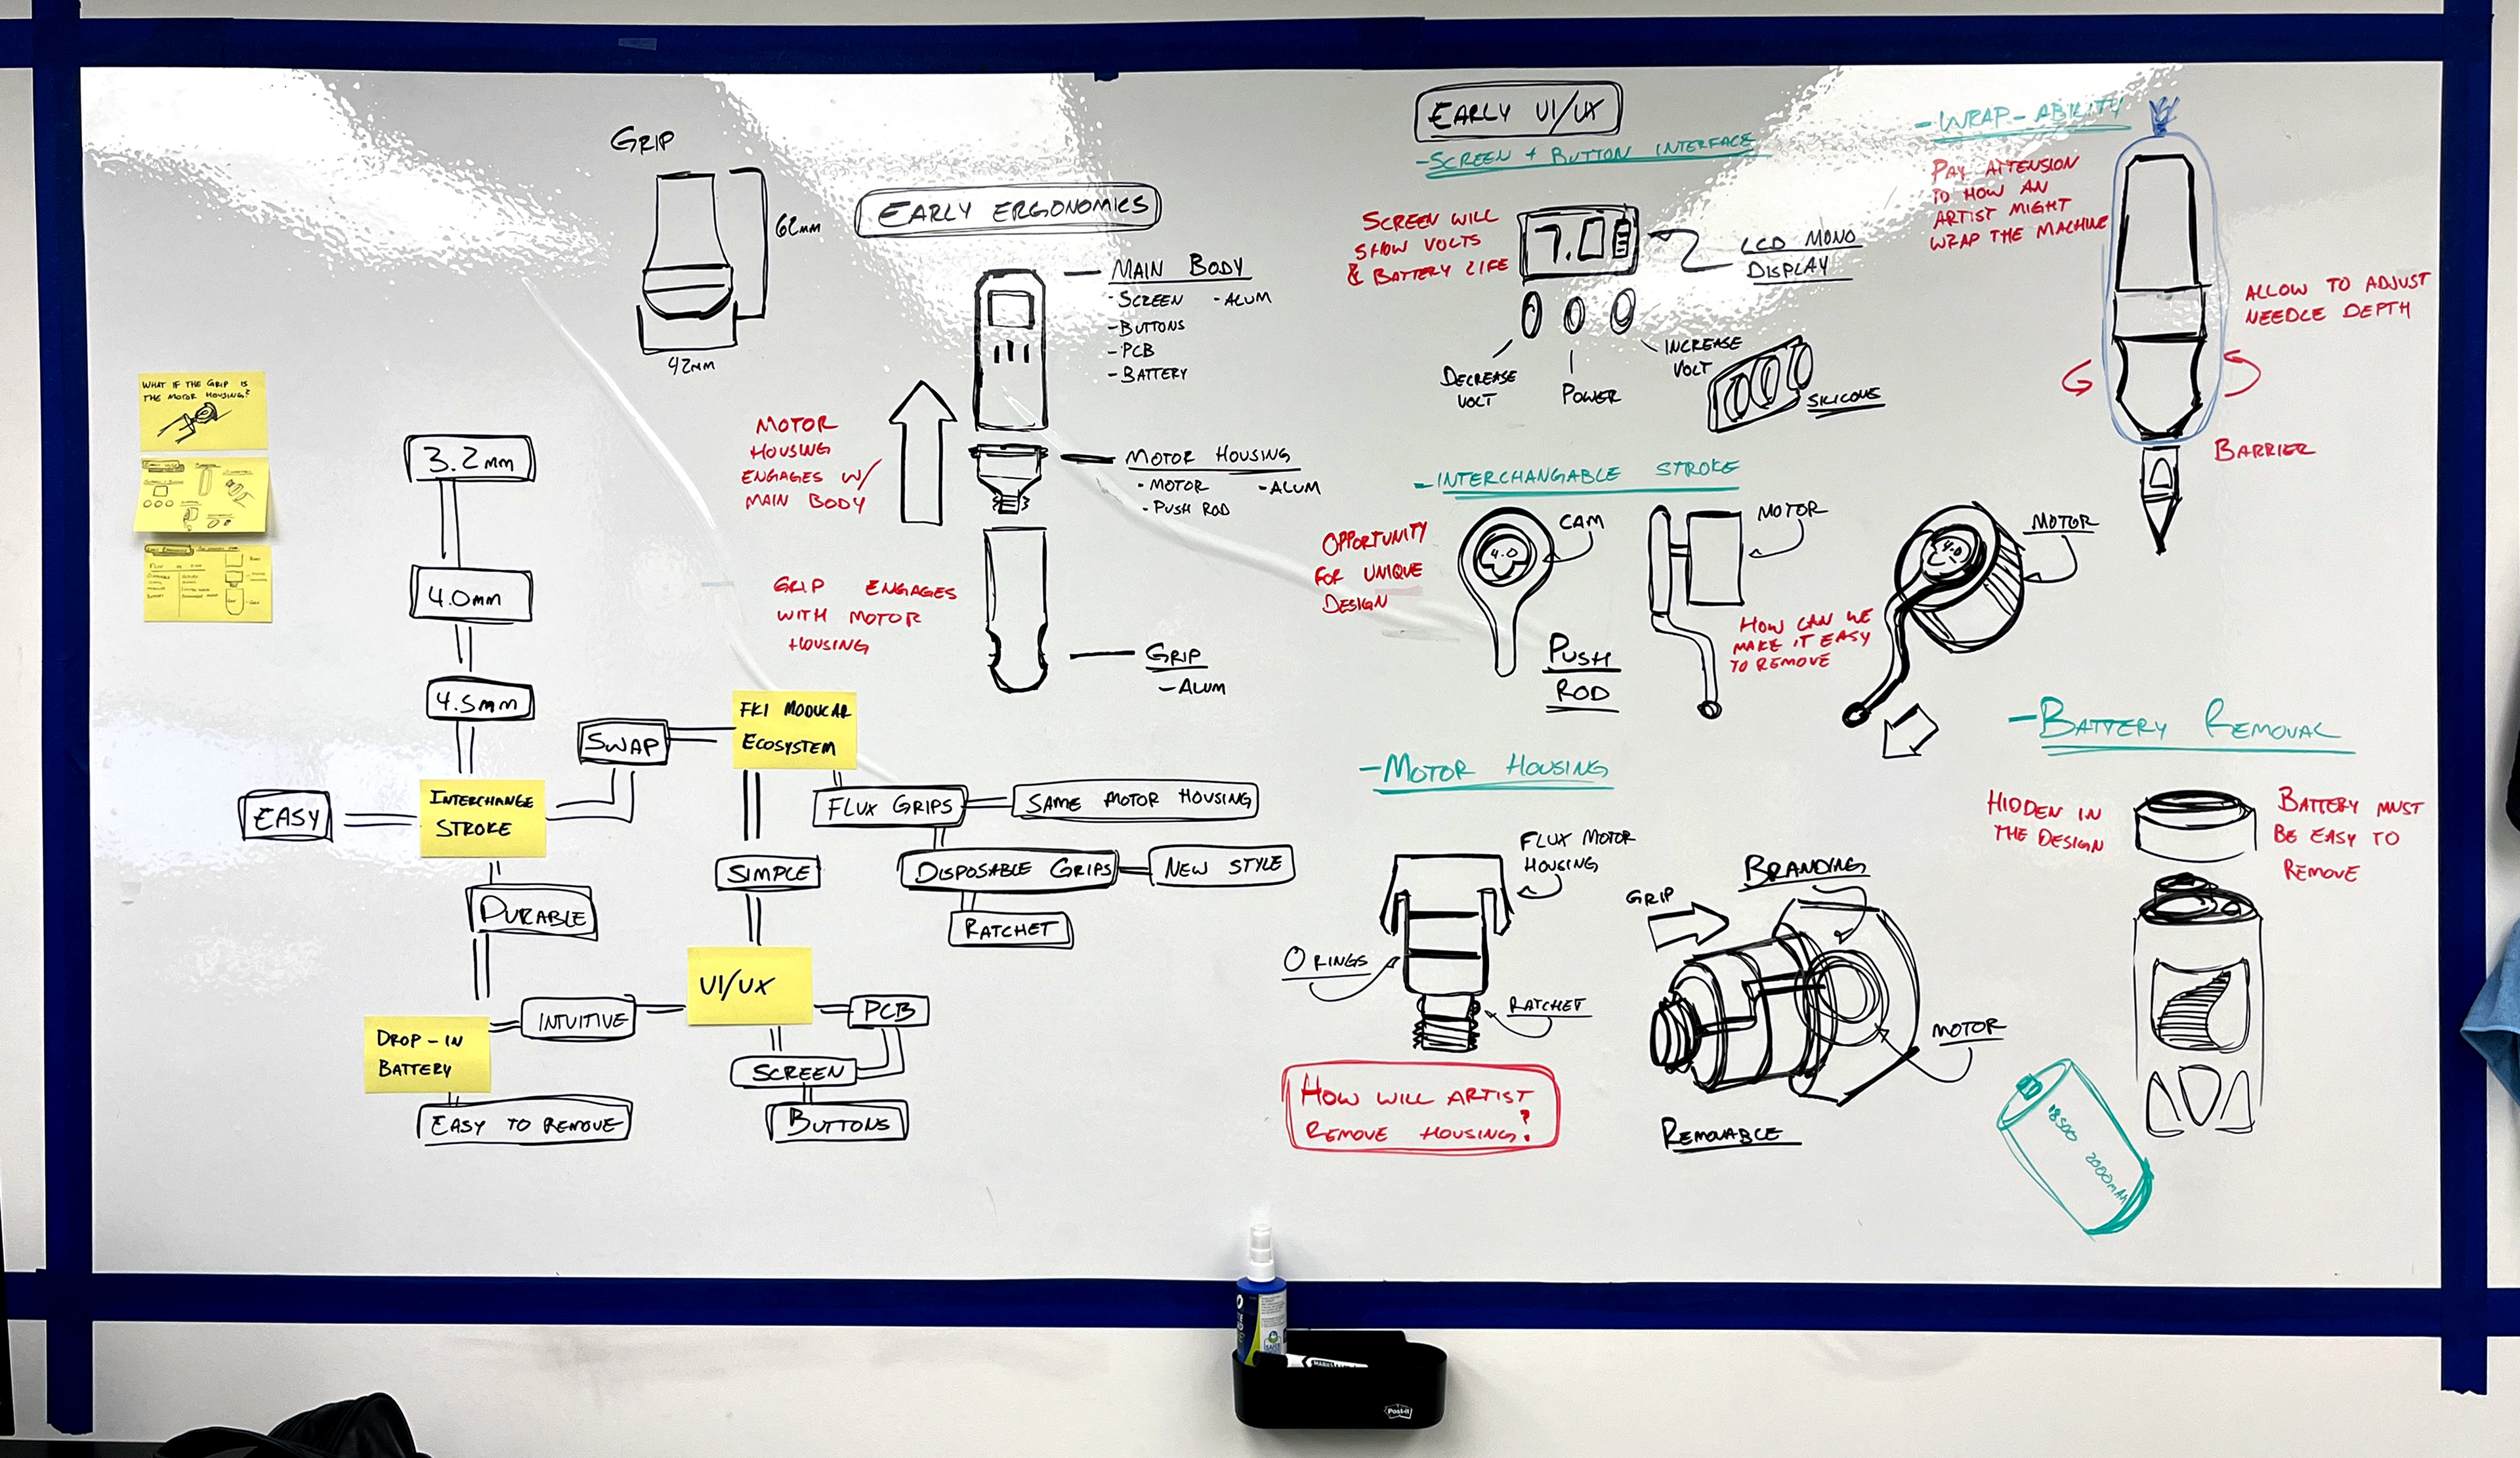 GRIP
62mm
42mm
EARLY ERGONOMICS
MAIN BODY
-SCREEN -ALUM
-BUTTONS
-PCB
-BATTERY
MOTOR
HOUSING
ENGAGES W/
MAIN BODY
MOTOR HOUSING
-MOTOR -ALUM
-PUSH ROD
GRIP ENGAGES
WITH MOTOR
HOUSING
GRIP
-ALUM
WHAT IF THE GRIP IS
THE MOTOR HOUSING?
3.2mm
4.0mm
4.5mm
EASY
INTERCHANGE
STROKE
SWAP
FK1 MODULAR
ECOSYSTEM
FLUX GRIPS
SAME MOTOR HOUSING
DISPOSABLE GRIPS
NEW STYLE
RATCHET
SIMPLE
DURABLE
UI/UX
INTUITIVE
PCB
SCREEN
BUTTONS
DROP-IN
BATTERY
EASY TO REMOVE
EARLY UI/UX
-SCREEN + BUTTON INTERFACE
SCREEN WILL
SHOW VOLTS
& BATTERY LIFE
7.0
LCD MONO
DISPLAY
DECREASE
VOLT
POWER
INCREASE
VOLT
SILICONE
-WRAP-ABILITY
PAY ATTENSION
TO HOW AN
ARTIST MIGHT
WRAP THE MACHINE
ALLOW TO ADJUST
NEEDLE DEPTH
BARRIER
-INTERCHANGABLE STROKE
OPPORTUNITY
FOR UNIQUE
DESIGN
4.0
CAM
PUSH
ROD
MOTOR
HOW CAN WE
MAKE IT EASY
TO REMOVE
4.0
MOTOR
-MOTOR HOUSING
FLUX MOTOR
HOUSING
O RINGS
RATCHET
HOW WILL ARTIST
REMOVE HOUSING?
GRIP
BRANDING
MOTOR
REMOVABLE
-BATTERY REMOVAL
HIDDEN IN
THE DESIGN
BATTERY MUST
BE EASY TO
REMOVE
18500
2000mAh
Post-it